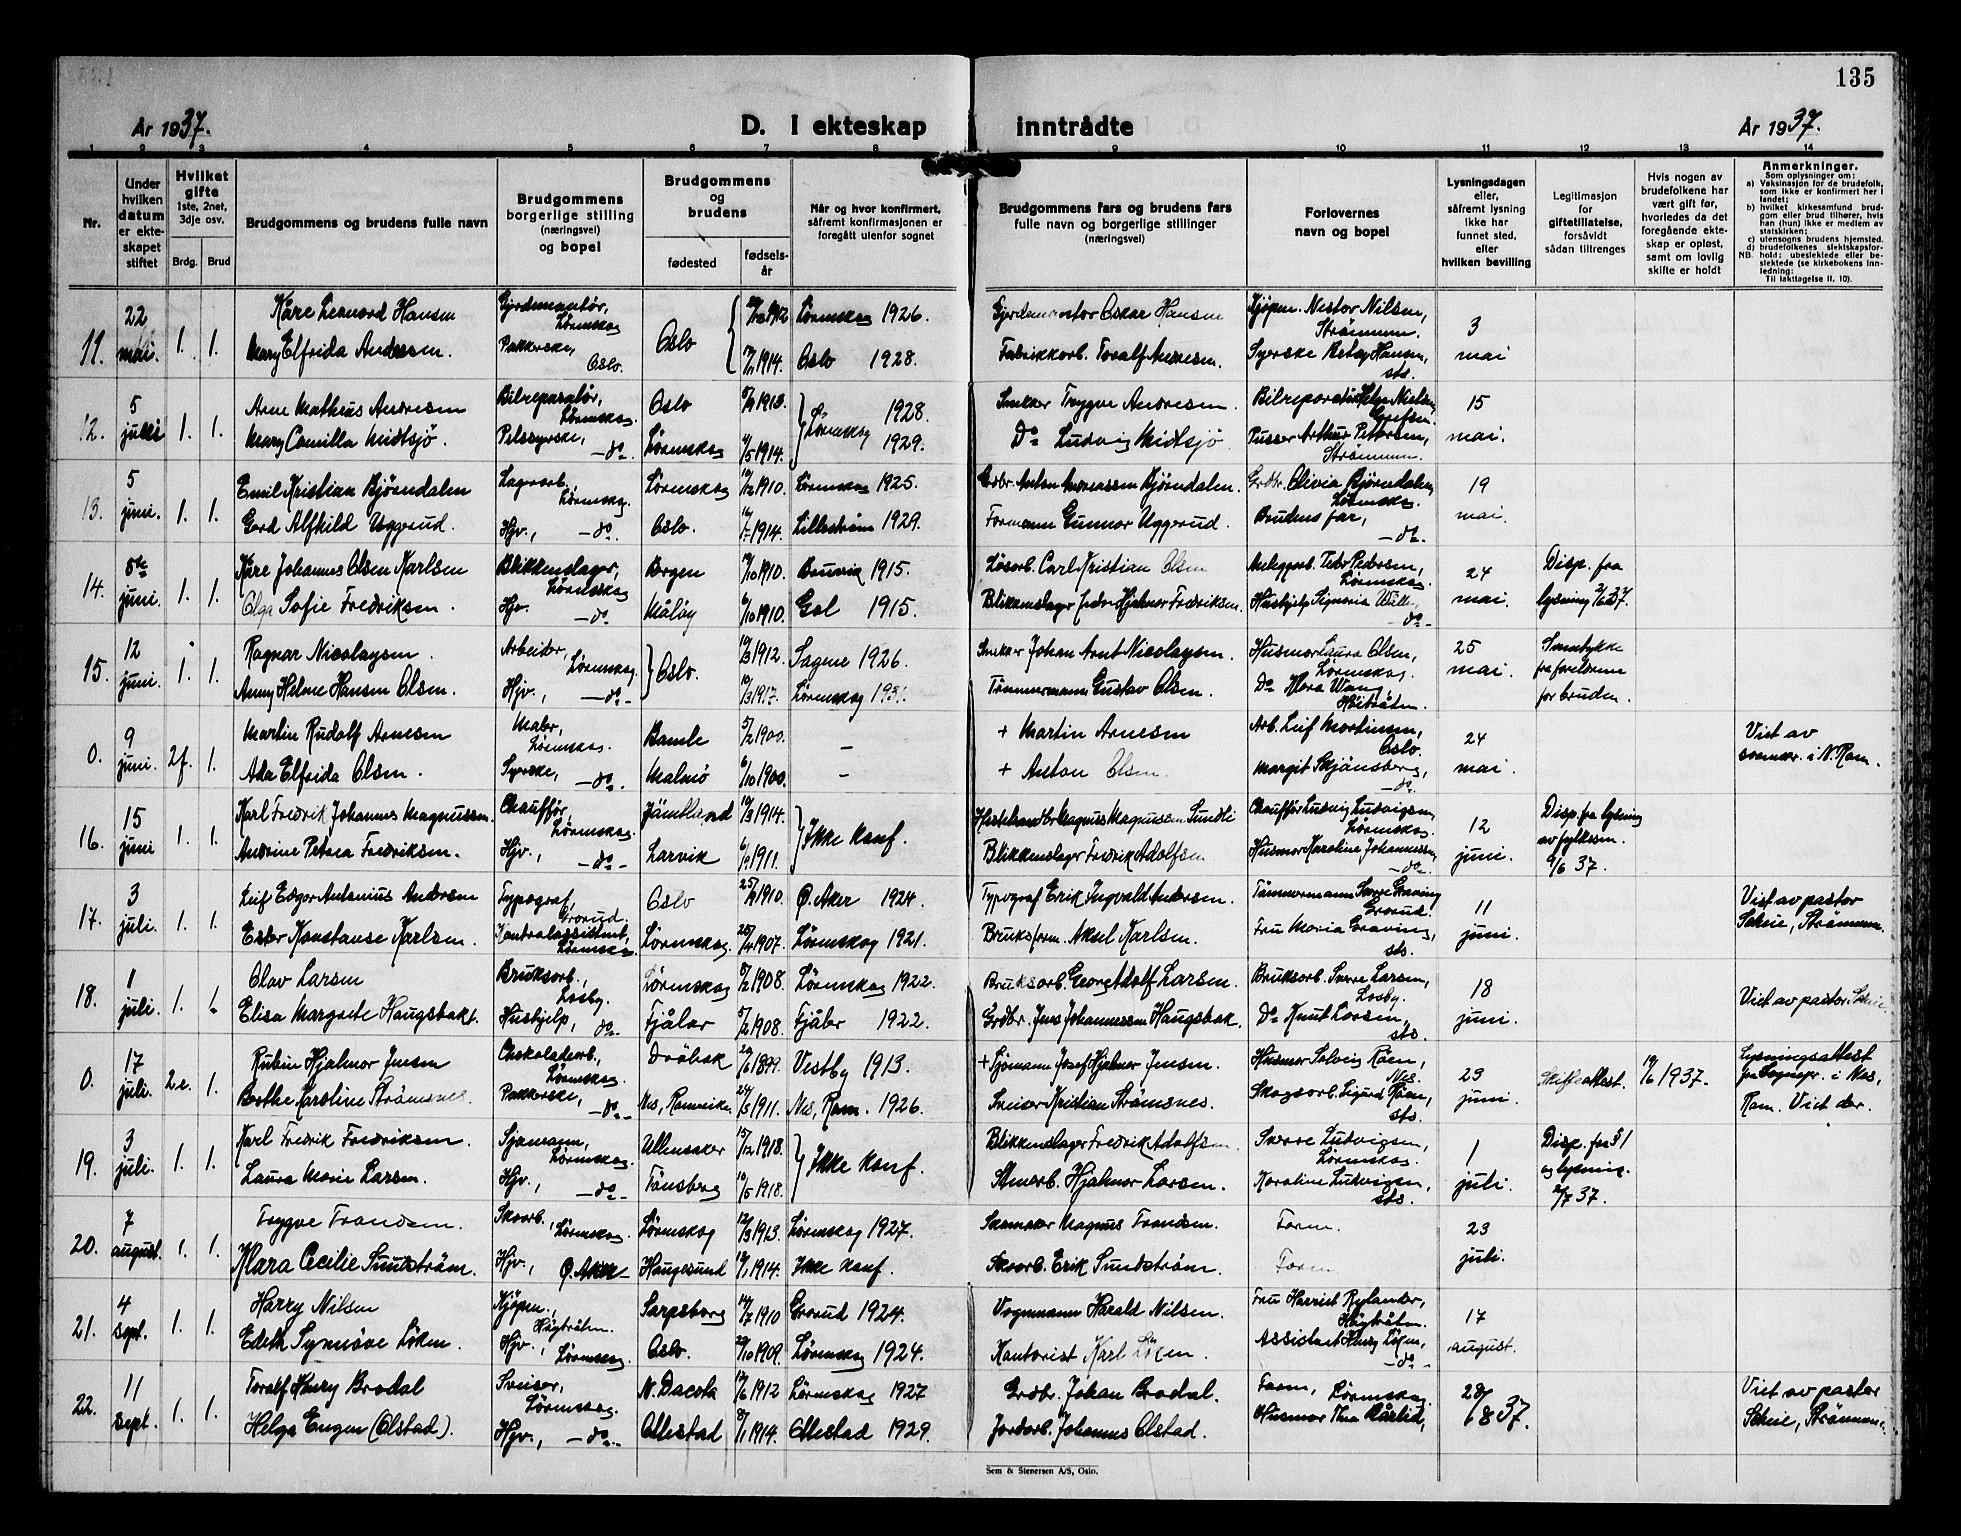 135
År 1937.
D. I ekteskap inntrådte
År 1937.
1 2 3 4 5 6 7 8 9 10 11 12 13 14
Nr.
Under hvilken datum er ekteskapet stiftet
Hvilket gifte 1ste, 2net, 3dje osv.
Brdg. Brud
Brudgommens og brudens fulle navn
Brudgommens borgerlige stilling (næringsvei) og bopel
Brudgommens og brudens
fødested
fødselsår
Når og hvor konfirmert, såfremt konfirmasjonen er foregått utenfor sognet
Brudgommens fars og brudens fars fulle navn og borgerlige stillinger (næringsvei)
Forlovernes navn og bopel
Lysningsdagen eller, såfremt lysning ikke har funnet sted, efter hvilken bevilling
Legitimasjon for giftetillatelse, forsåvidt sådan tiltrenges
Hvis nogen av brudefolkene har vært gift før, hvorledes da det foregående ekteskap er opløst, samt om lovlig skifte er holdt
Anmerkninger.
Som oplysninger om:
a) Vaksinasjon for de brudefolk, som ikke er konfirmert her i landet;
b) hvilket kirkesamfund brudgom eller brud tilhører, hvis han (hun) ikke er medlem av statskirken;
c) utensogns brudens hjemsted.
d) brudefolkenes slektskapsforhold: ubeslektede eller beslektede (se kirkebokens innledning:
NB.
Til iakttagelse II. 10).
11. 22 mai. 1. 1. Kåre Leonard Hansen Lørenskog Oslo 1912 Lørenskog 1926. Oskar Hansen Kjøpm. Nestor Nilsen, Strømmen. 3 mai
Mary Elfrida Andresen. Pakkerske, Oslo. 1914. Oslo 1928. Fabrikkarb. Toralf Andresen. Syerske Betsy Hansen, sts.
12. 5 1. 1. Arne Mathius Andresen Bilreparatør, Lørenskog. Oslo 1913. Lørenskog 1928. Snekker Trygve Andresen. Bilreparatør 15 mai.
Mary Camilla Midtsjø. Pelssyerske, -do- Lørenskog 1914. 1929. Do Ludvig Midtsjø. Pusser Arthur Pettersen, Strømmen.
13. 5 juni. 1. 1. Emil Kristian Bjørndalen Lagerarb, Lørenskog. Lørenskog 1910. Lørenskog 1925. Grdbr. Anton Andreassen Bjørndalen. Grdbr. Olivia Bjørndalen, Lørenskog. 19 mai.
Gerd Alfhild Uggerud. Hjv., -do- Oslo. 1914. Lillestrøm 1929. Formann Gunnar Uggerud. Brudens far, -do-
14. 5te juni. 1. 1. Kåre Johannes Olsen Karlsen Blikkenslager, Lørenskog Bergen 1910. 1915. Løsarb. Carl Kristian Olsen Anleggarb. Peder Pedersen, Lørenskog 24 mai. Disp. fra lysning 2/6 37.
Olga Sofie Fredriksen. Hjv. -do- Måløy 1910. Gol 1915. Blikkenslager Hjalmar Fredriksen. Hushjelp -do-
15. 12 juni. 1. 1. Ragnar Nicolaysen. Arbeider, Lørenskog. Oslo. 1912. Sagene 1926. Snekker Johan Arnt Nicolaysen. Husmor Laura Olsen, Lørenskog. 25 mai. Samtykke fra foreldrene for bruden.
Anny Helene Hansen Olsen. Hjv., -do- 1917. Lørenskog 1931. Tømmermann Gustav Olsen. Do
0. 9 juni. 2f. 1. Martin Rudolf Arnesen Maler, Lørenskog. Bamle 5/2 1900. - + Martin Arnesen Arb. Leif Mortinsen, Oslo. 24 mai. Viet av sorenskr. i N. Rom.
Ada Elfrida Olsen. Syerske, -do- Malmø 6/10 1900. - + Anton Olsen. Margit Skjønsberg, -do-
16. 15 juni 1. 1. Karl Fredrik Johannes Magnussen Chauffør, Lørenskog. Jämtland 1914. Ikke konf. Hestehandler Magnus Magnussen Sundli Chauffør Ludvig Ludvigsen, Lørenskog. 12 juni. Disp. fra lysning av fylkesm. 9/6 37.
Andrine Petrea Fredriksen. Hjv., -do- Larvik 1911. Blikkenslager Fredrik Adolfsen Husmor Karoline Johannessen -do-
17. 3 juli. 1. 1. Leif Edgar Antonius Andersen Typograf, Grorud. Oslo 1910. Ø. Aker 1924. Typograf Erik Ingvald Andersen. Tømmermann Sverre Graving Grorud. 11 juni. Viet av pastor Scheie, Strømmen.
Ester Konstanse Karlsen. Kontorassistent, Lørenskog Lørenskog. 1907. Lørenskog 1921. Bruksform. Aksel Karlsen. Fru Maria Graving, sts.
18. 1 juli. 1. 1. Olav Larsen Bruksarb., Losby. Lørenskog 1908. Lørenskog 1922. Bruksarb. Georg Adolf Larsen. Bruksarb. Sverre Larsen, Losby. 18 juni. Viet av pastor Scheie
Elise Margrete Haugsbakt. Hushjelp, do- Fjåler 1908. Fjåler 1922. Grdbr. Jens Johannessen Haugsbak. Do Knut Larsen, sts.
0. 17 juli. 2e. 1. Rubin Hjalmar Jensen Chokoladearb., Lørenskog. Drøbak 1899. Vestby 1913. + Sjømann Josef Hjalmar Jensen. Husmor Solveig Råen, Nes. 23 juni. Skifteattest. 19/6 1937. Lysningsattest fra Sognepr. i Nes, Rom. Viet der.
Berthe Karoline Strømsnes. Pakkerske, -do- Nes, Romerike 24/5 1911. Nes, Rom. 1926. Kristian Strømsnes. Skogsarb. Sigurd Råen, sts.
19. 3 juli. 1. 1. Karl Fredrik Fredriksen. Sjømann, Lørenskog. Ullensaker 15/12 1918. Ikke konf. Blikkenslager Fredrik Adolfsen Sverre Ludvigsen, Lørenskog. 1 juli. Disp. fra § 1 og lysning. 2/7 37.
Laura Marie Larsen. Hjv., -do- Tønsberg 1918. Stenarb. Hjalmar Larsen. Karoline Ludvigsen, sts.
20. 7 august. 1. 1. Trygve Trondsen. Skoarb., Lørenskog. Lørenskog 12/3 1913. Lørenskog 1927. Skomaker Magnus Trondsen. Form. 23 juli.
Klara Cecilie Sundstrøm. Hjv., Ø. Aker Haugesund 1914. Ikke konf. Skoarb. Erik Sundstrøm. Form.
21. 4 sept. 1. 1. Harry Nilsen Kjøpm., Høybråten. Sarpsborg 14/7 1910 Grorud 1924. Vognmann Harald Nilsen. Fru Harriet Rylander, Høybråten. 17 august.
Edith Synnøve Løken. Hjv., Lørenskog Oslo. 1909. Lørenskog 1924. Kontorist Karl Løken. Assistent Henry Løken, -do-
22. 11 sept. 1. 1. Toralf Henry Brodal Sveiser, Lørenskog. N. Dacota 1912 Lørenskog 1927 Grdbr. Johan Brodal. Form, Lørenskog. 28/8 37. Viet av pastor Scheie, Strømmen.
Helga Engen (Olstad). Hjv., -do- Ottestad 1914. Ottestad 1929. Jordarb. Johannes Olstad. Husmor Thea Kårlid,
Sem & Stenersen A/S, Oslo.